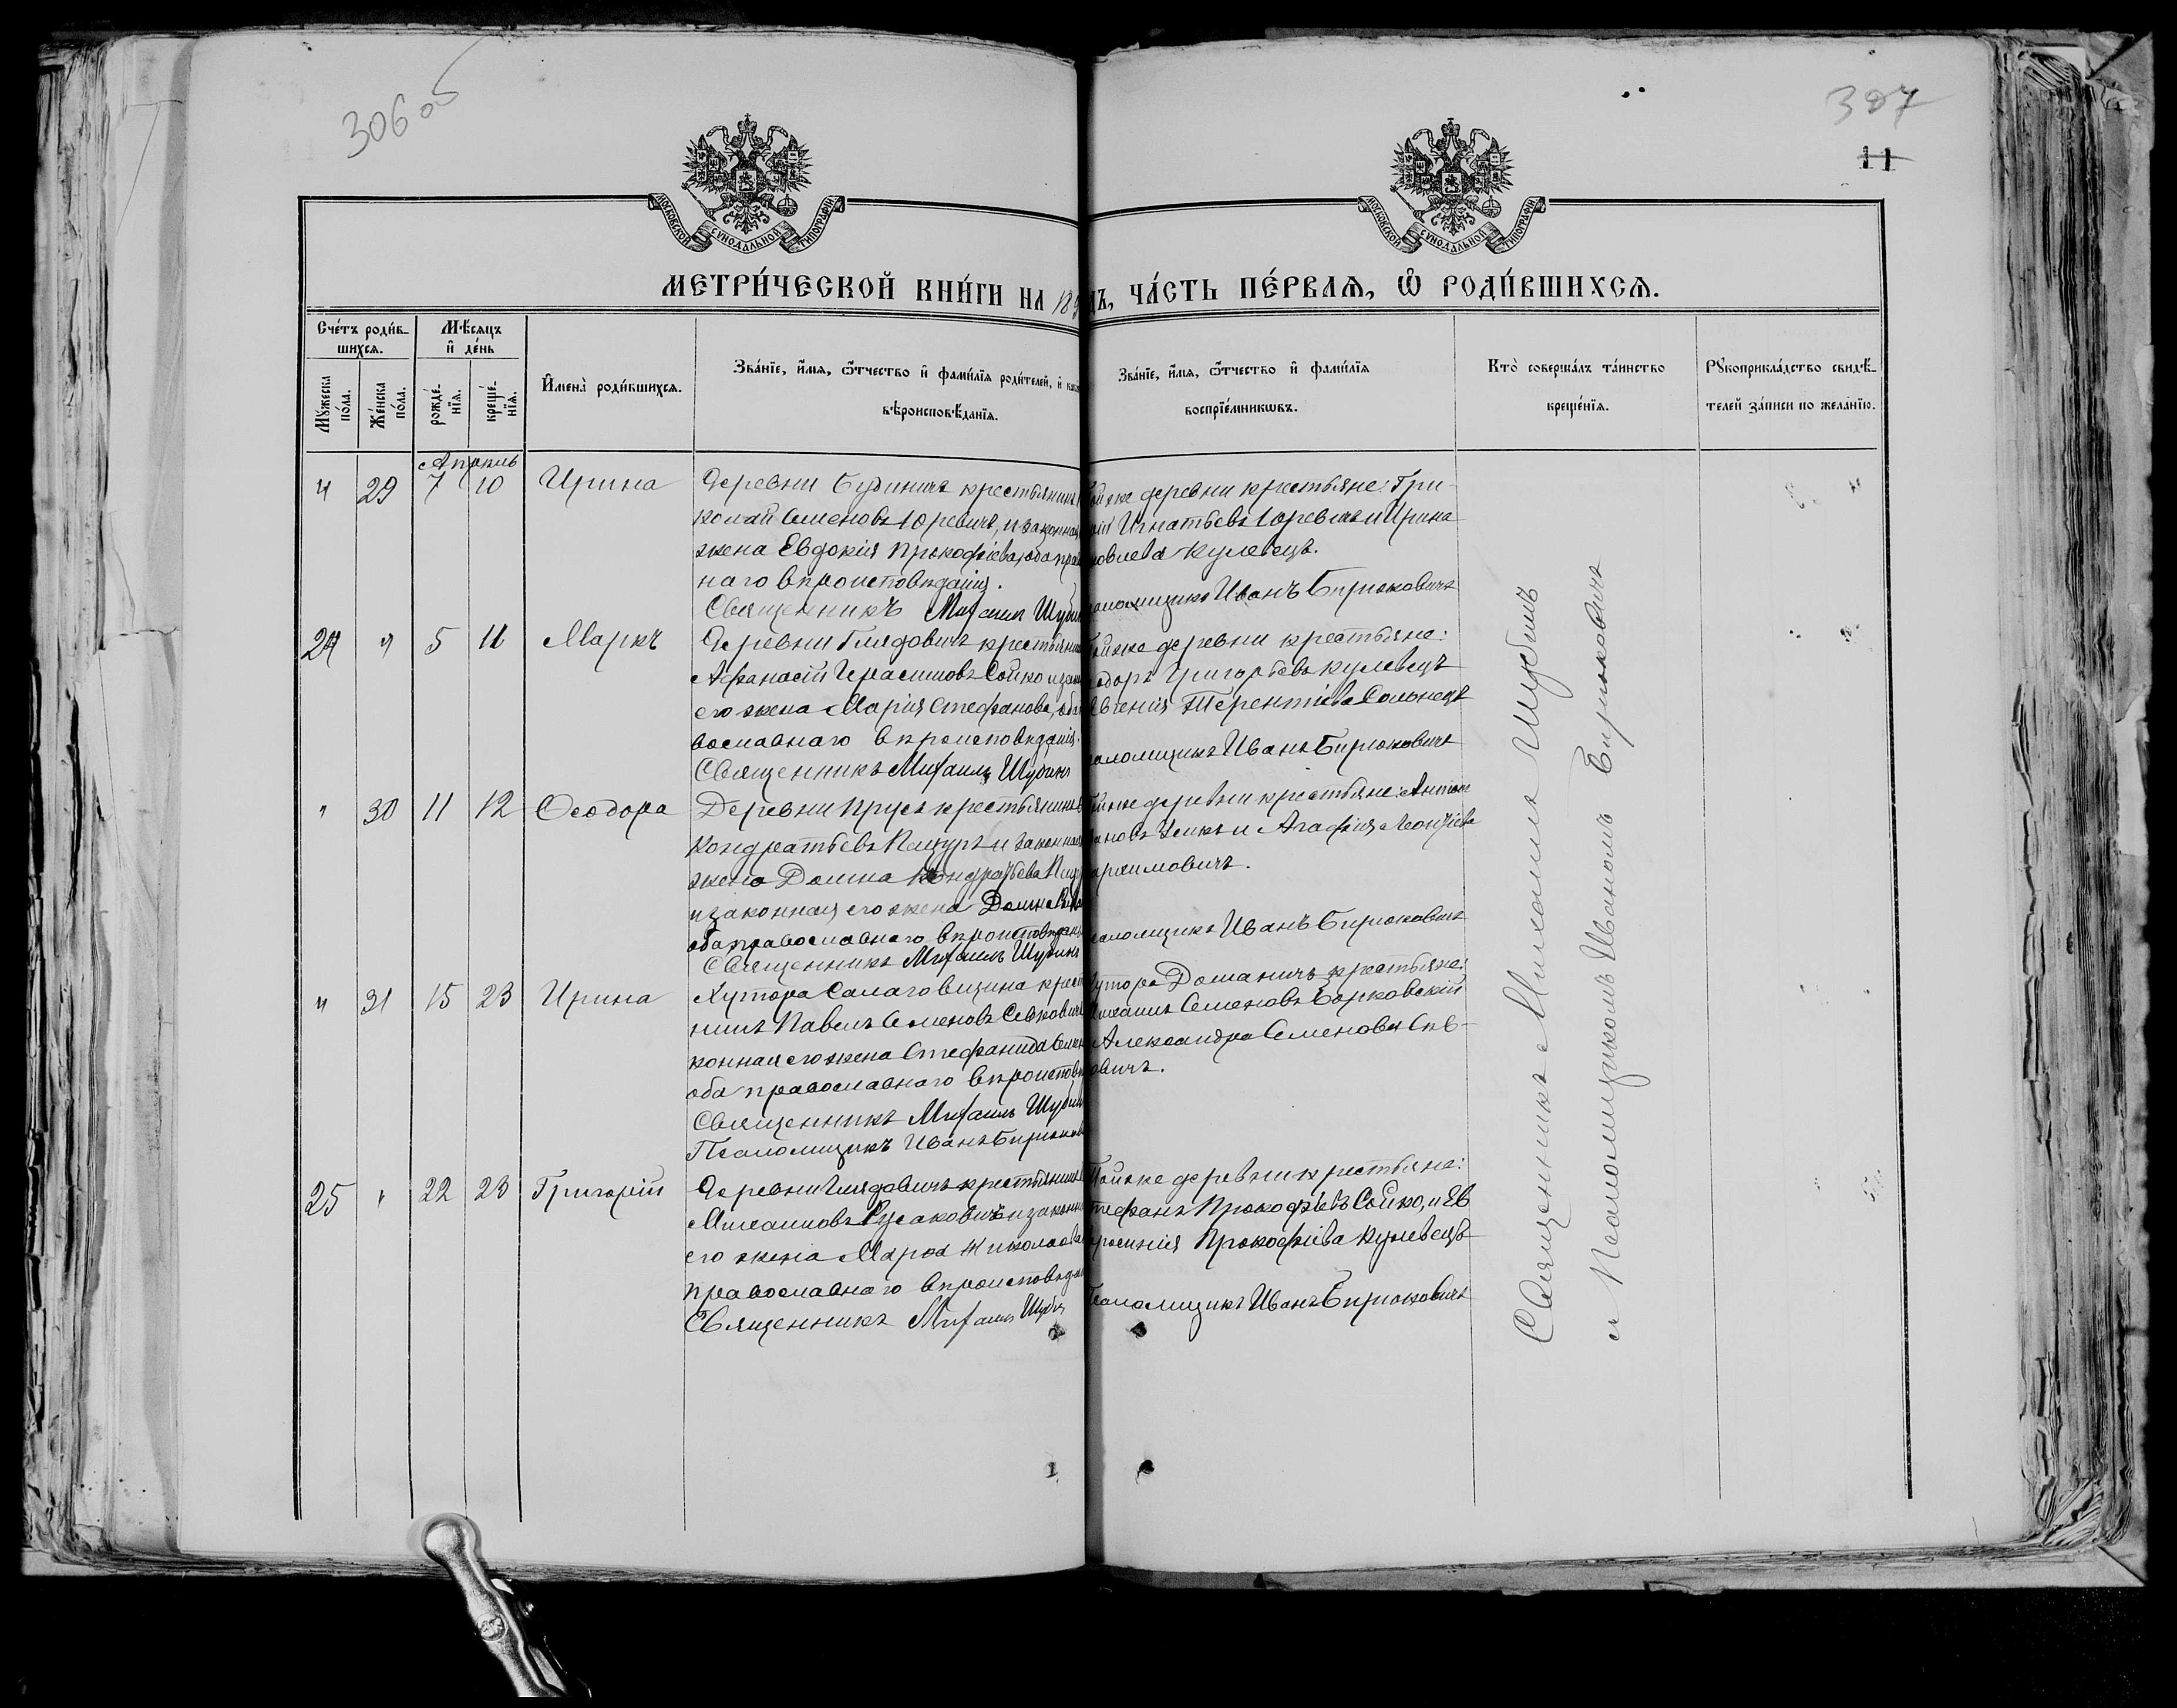 306 об
307
11
МОСКОВСКОЙ СУНОДАЛЬНОЙ ТИПОГРАФІИ
МОСКОВСКОЙ СУНОДАЛЬНОЙ ТИПОГРАФІИ
МЕТРИ́ЧЕСКОЙ КНИ́ГИ НА 189
ДЪ, ЧА́СТЬ ПЕ́РВАѦ, Ѿ РОДИ́ВШИХСѦ.
Сче́тъ роди́в-
шихсѧ.
Мꙋ́жеска
по́ла.
Же́нска
по́ла.
Мѣ́сѧцъ
и҆ де́нь
рожде́-
нїѧ.
креще́-
нїѧ.
И҆мена̀ роди́вшихсѧ.
Зва́нїе, и҆́мѧ, ѻ҆́тчество и҆ фами́лїѧ роди́телей, и҆
вѣроисповѣ́данїѧ.
Зва́нїе, и҆́мѧ, ѻ҆́тчество и҆ фами́лїѧ
воспрїе́мникѡвъ.
Кто̀ соверша́лъ та́инство
креще́нїѧ.
Рꙋкоприкла́дство свидѣ́-
телей за́писи по жела́нїю.
Апрель
" 29 7 10 Ирина
Деревни Будиничъ крестьянинъ
колай Семеновъ Юревичъ, и законная
жена Евдокія Прокофіева, оба прав
наго вѣроисповѣданія.
Священникъ Михаилъ Шубин
той же деревни крестьяне: Гри-
рій Игнатьевъ Юревичъ и Ирина
ковлева Кулевецъ.
саломщикъ Иванъ Бирюковичъ
24 " 5 11 Маркъ
Деревни Глядовичъ крестьянин
Афанасій Герасимовъ Сойко и зако
его жена Марія Стефанова, оба
вославнаго вѣроисповѣданія.
Священникъ Михаилъ Шубинъ
Той же деревни крестьяне:
одоръ Григорьевъ Кулевецъ
Евгенія Терентіева Сольнецъ
саломщикъ Иванъ Бирюковичъ
" 30 11 12 Ѳеодора
Деревни Прусъ крестьянинъ
Кондратьевъ Пацуръ и законная
жена Домна Кондратьева Пац
и законная его жена Домна
оба православнаго вѣроисповѣдан
Священникъ Михаилъ Шубинъ
Той же деревни крестьяне: Антон
ановъ и Агафія Леонтіева
ахимовичъ.
саломщикъ Иванъ Бирюковичъ
" 31 15 23 Ирина
Хутора Салаговщина крест
нинъ Павелъ Семеновъ Севковичъ
конная его жена Стефанида Семен
оба православнаго вѣроисповѣ
Священникъ Михаилъ Шубин
Псаломщикъ Иванъ Бирюков
утора Доманичъ крестьяне:
Михаилъ Семеновъ Борковскій
Александра Семенова Сев-
овичъ.
25 " 22 23 Григорій
Деревни Глядовичъ крестьянинъ
Михаиловъ Русаковичъ и законн
его жена Марѳа Николаева
православнаго вѣроисповѣдан
Священникъ Михаилъ Шубин
Той же деревни крестьяне:
тефанъ Прокофьевъ Сойко, и Ев
фросинія Прокофіева Кулевецъ
Псаломщикъ Иванъ Бирюковичъ
Священникъ Михаилъ Шубинъ
и Псаломщикомъ Иваномъ Бирюковичъ